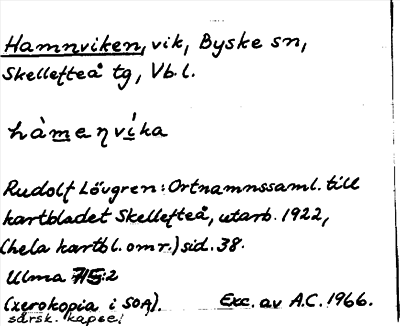 Hamnviken, vik, Byske sn,
Skellefteå tg, Vb. l.
hàmenvíka
Rudolf Lövgren: Ortnamnssaml. till
kartbladet Skellefteå, utarb. 1922,
(hela kartbl. omr.) sid. 38.
Ulma :2
(xerokopia i SOA). Exc. av A.C. 1966.
särsk. kapsel